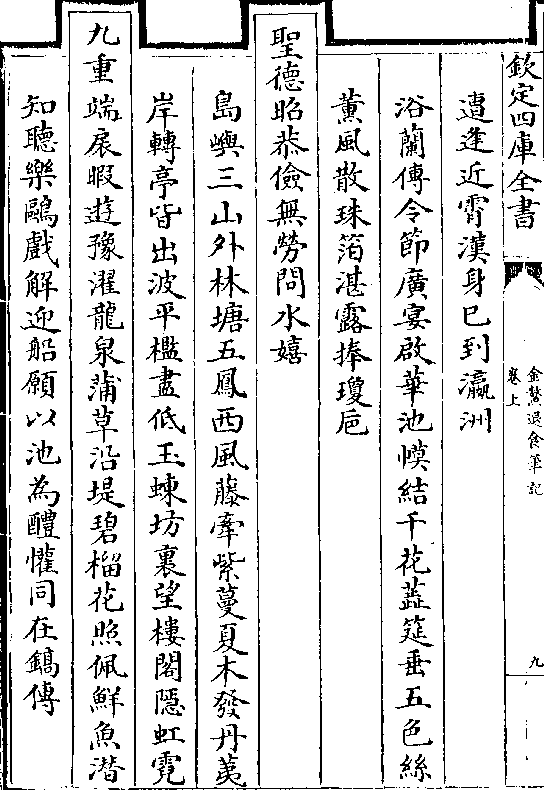 欽定四庫全書
金鰲退食筆記
卷上
九
遭逢近霄漢身已到瀛洲
浴蘭傳令節廣宴啟華池幙結千花蕋筵垂五色絲
薫風散珠箔湛露捧瓊巵
聖德昭恭儉無勞問水嬉
島嶼三山外林塘五鳳西風藤牽紫蔓夏木發丹荑
岸轉亭皆出波平檻盡低玉蝀坊裏望樓閣隱虹霓
九重端扆暇遊豫濯龍泉蒲草沿堤碧榴花照佩鮮魚潛
知聽樂鷗戲解迎船願以池為醴懽同在鎬傳